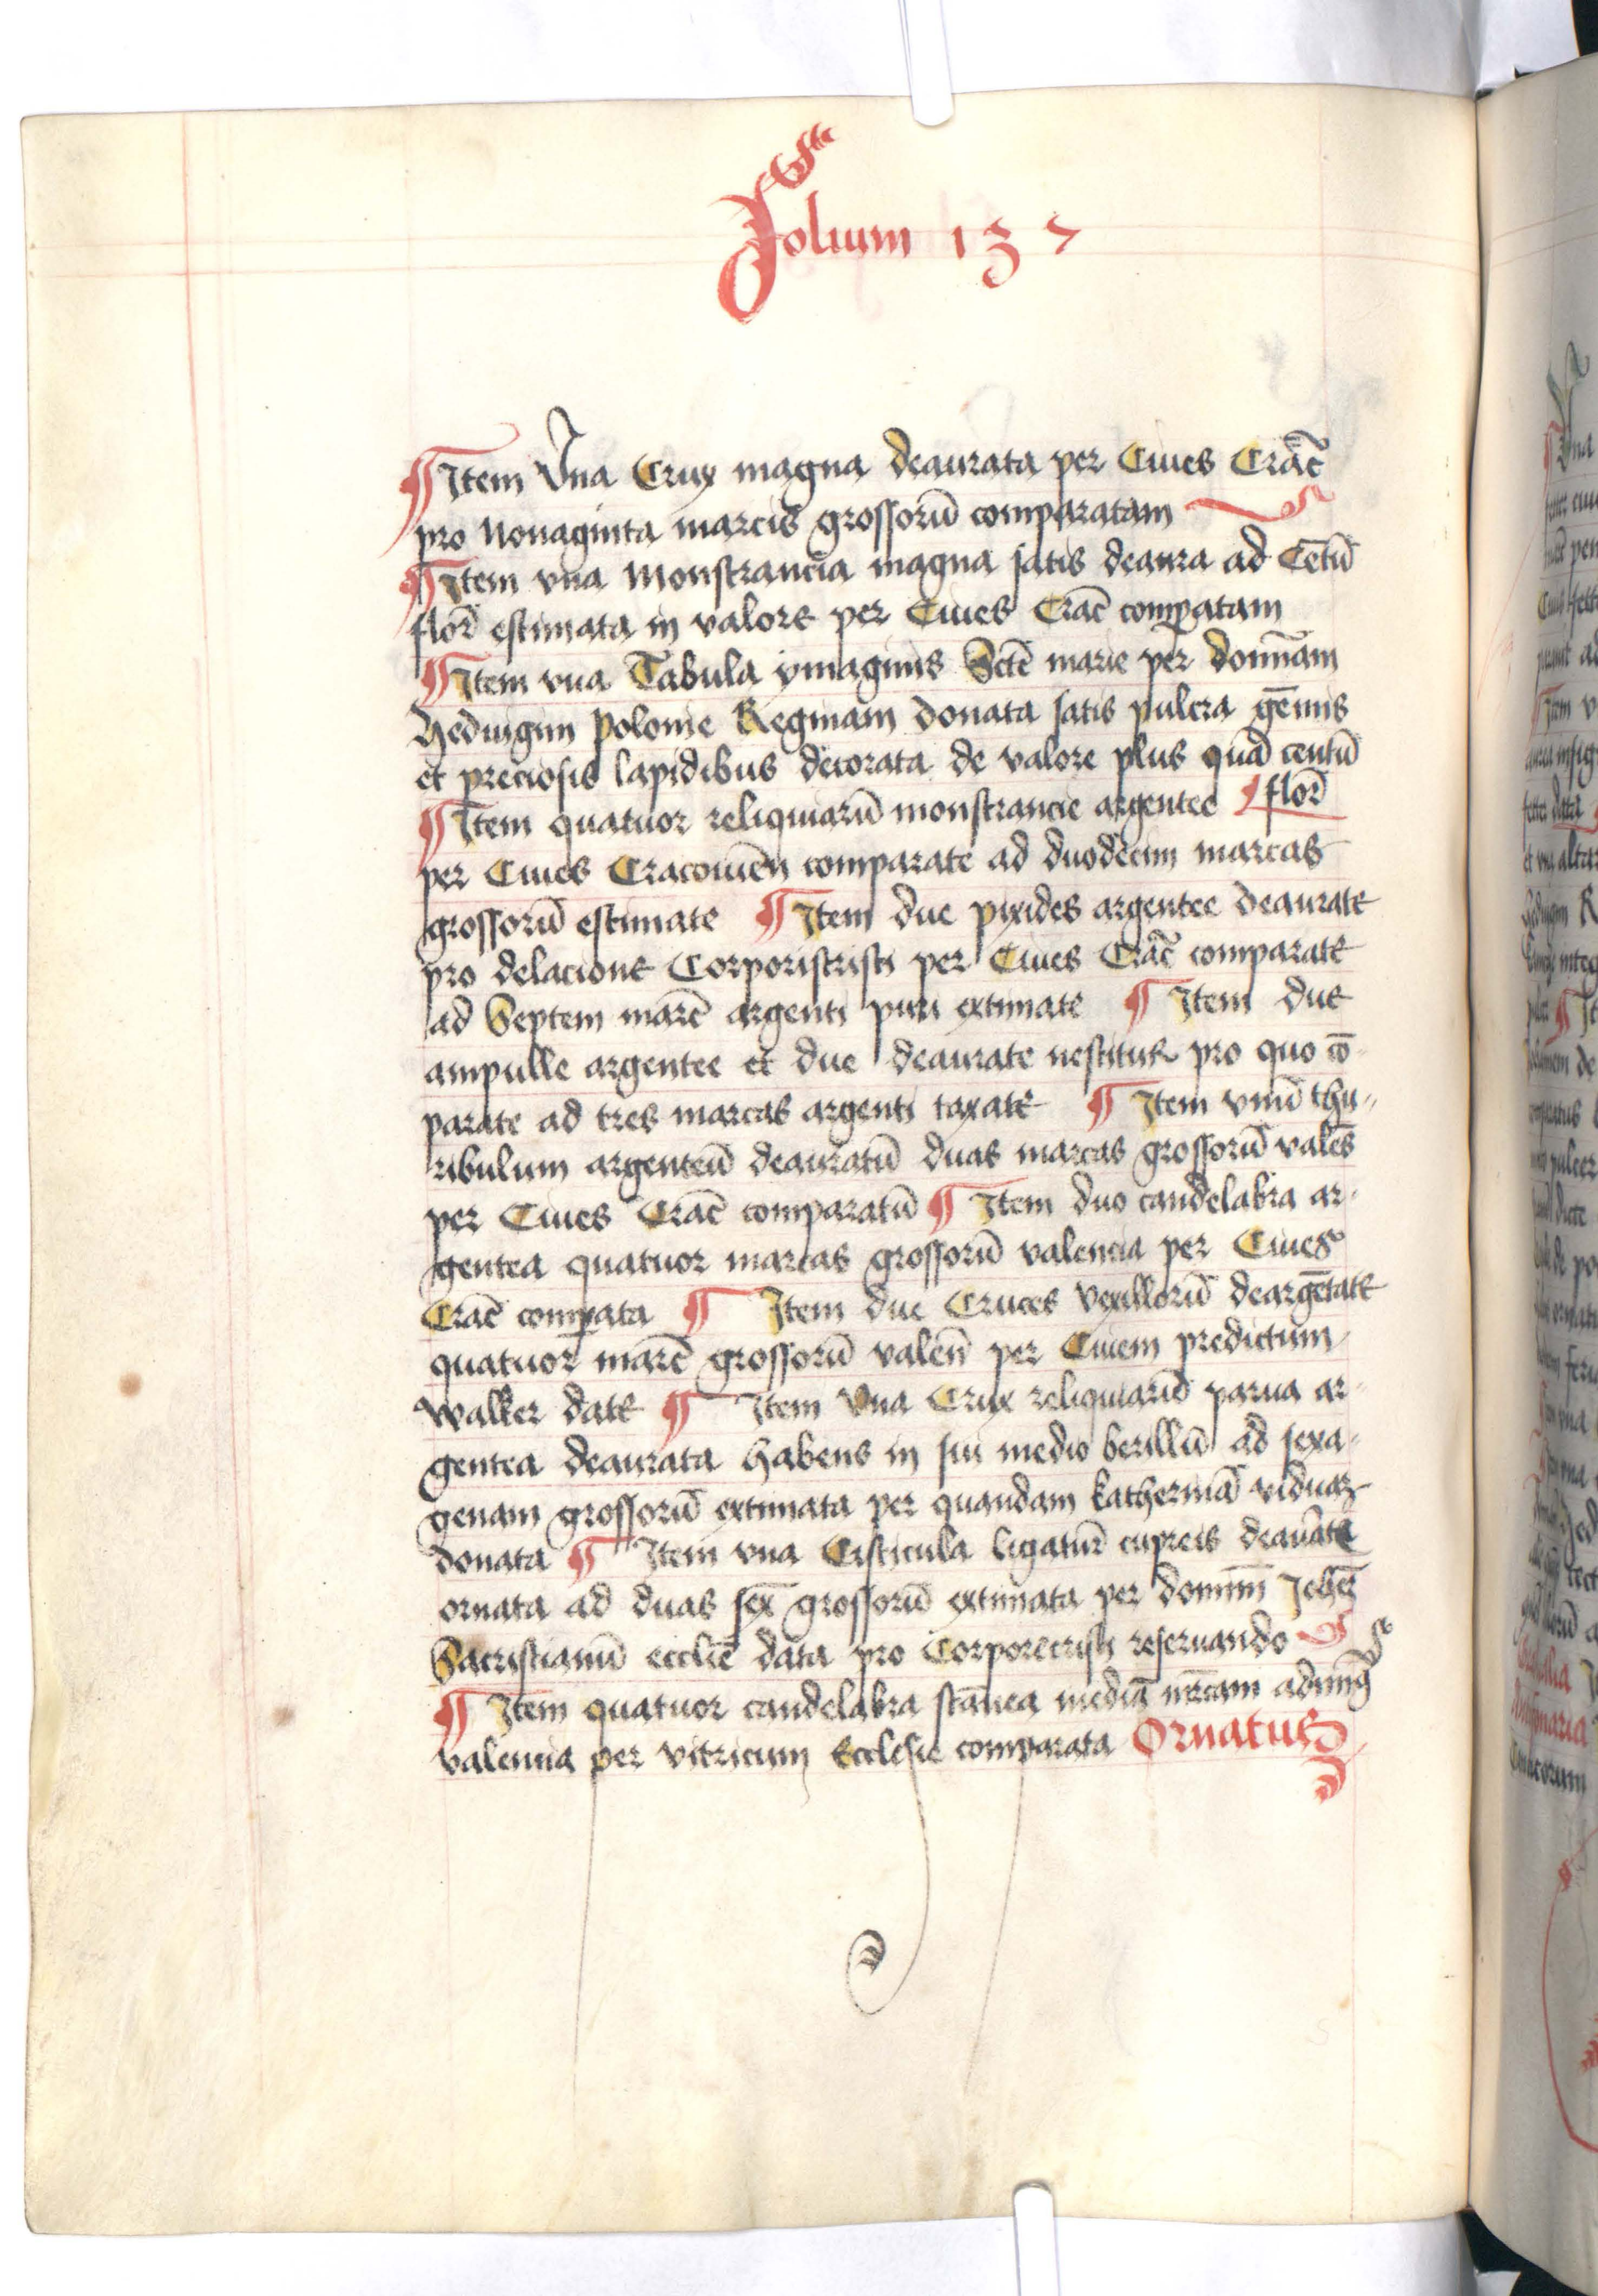 Folium 137
¶ Item Vna Crux magna deaurata per Ciues Crac̄
pro Nonaginta marcis grossorū comparatam
¶ Item vna Monstrancia magna satis deaura ad Cētū
flor̄ estimata in valore per Ciues Crac̄ comꝑatam
¶ Item vna Tabula ymaginis Sctē marie per domīnam
Hedwigim polonie Reginam donata satis pulcra gēmis
et preciosis lapidibus decorata de valore plus quā centū
¶ Item quatuor reliquiarū monstrancie argentee flor̄
per Ciues Cracouien̄ comparate ad duodecim marcas
grossorū estimate ¶ Item due pixides argentee deaurate
pro delacione Corporiscristi per Ciues Crac̄ comparate
ad Septem marc̄ argenti puri extimate ¶ Item due
ampulle argentee et due deaurate nescitur pro quo cō
parate ad tres marcas argenti taxate ¶ Item vnū thu
ribulum argenteū deauratū duas marcas grossorū valēs
per Ciues Crac̄ comparatū ¶ Item duo candelabra ar
gentea quatuor marcas grossorū valencia per Ciues
Crac̄ comꝑata ¶ Item due Cruces vexillorū deargētate
quatuor marc̄ grossorū valen̄ per Ciuem predictum
walker date ¶ Item Vna Crux reliquiarū parua ar
gentea deaurata habens in sui medio berillū ad sexa
genam grossorū extimata per quandam katherinā viduaʒ
donata ¶ Item vna Cisticula ligatur̄ cupreis deaur̄ate
ornata ad duas sex̄ grossorū extimata per domīnī
Sacristianū eccliē data pro Corporecristi reseruando
¶ Item quatuor candelabra stānea mediā mr̄cam
valencia per vitricum Ecclesie comparata Ornatus